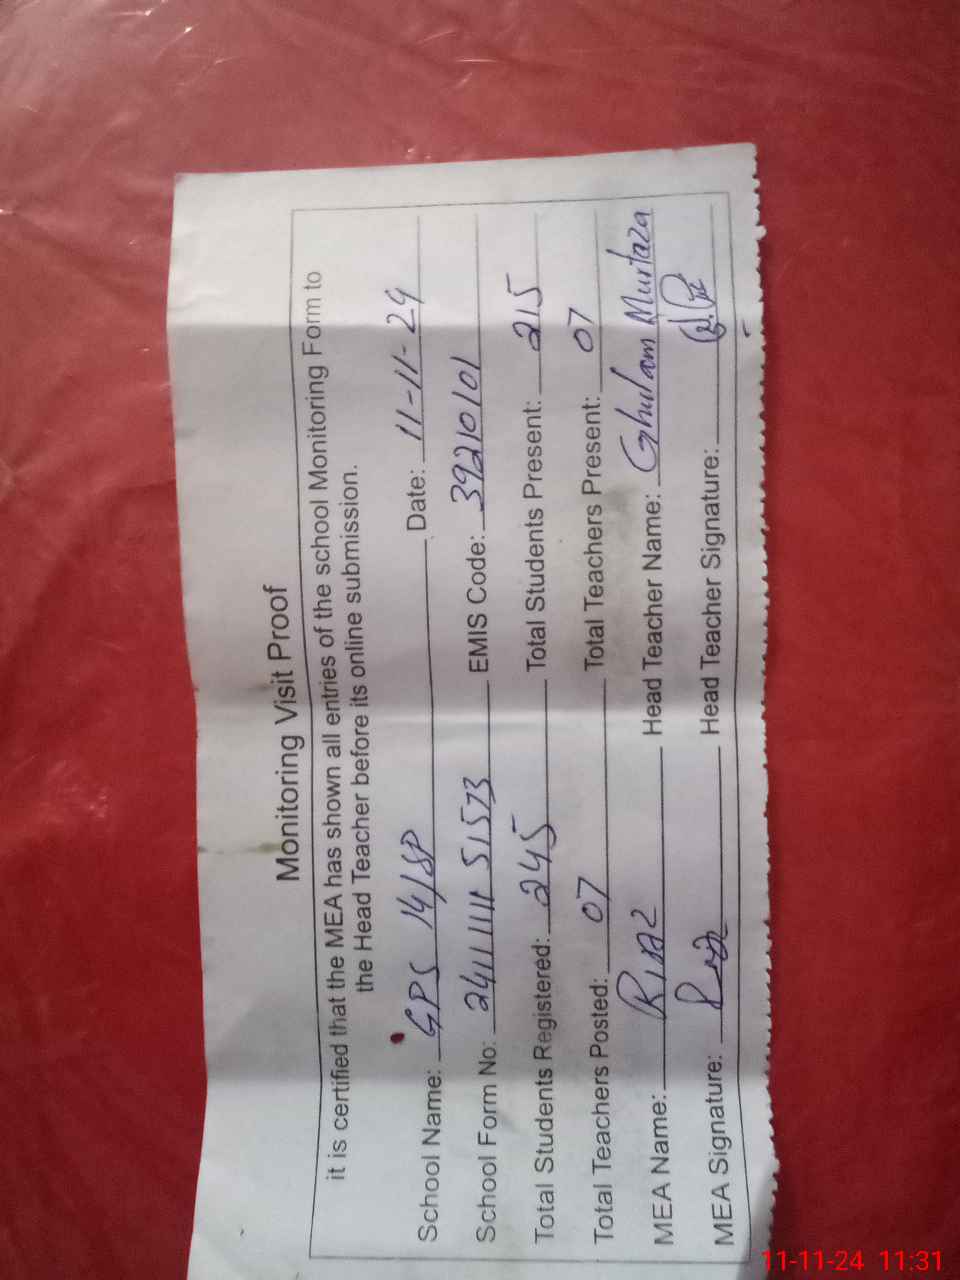 Monitoring Visit Proof
it is certified that the MEA has shown all entries of the school Monitoring Form to
the Head Teacher before its online submission.
School Name: GPS 14/SP Date: 11-11-24
School Form No: 2411111151573 EMIS Code: 39210101
Total Students Registered: 245 Total Students Present: 215
Total Teachers Posted: 07 Total Teachers Present: 07
MEA Name: RIAZ Head Teacher Name: Ghulam Murtaza
MEA Signature: Head Teacher Signature:
11-11-24 11:31